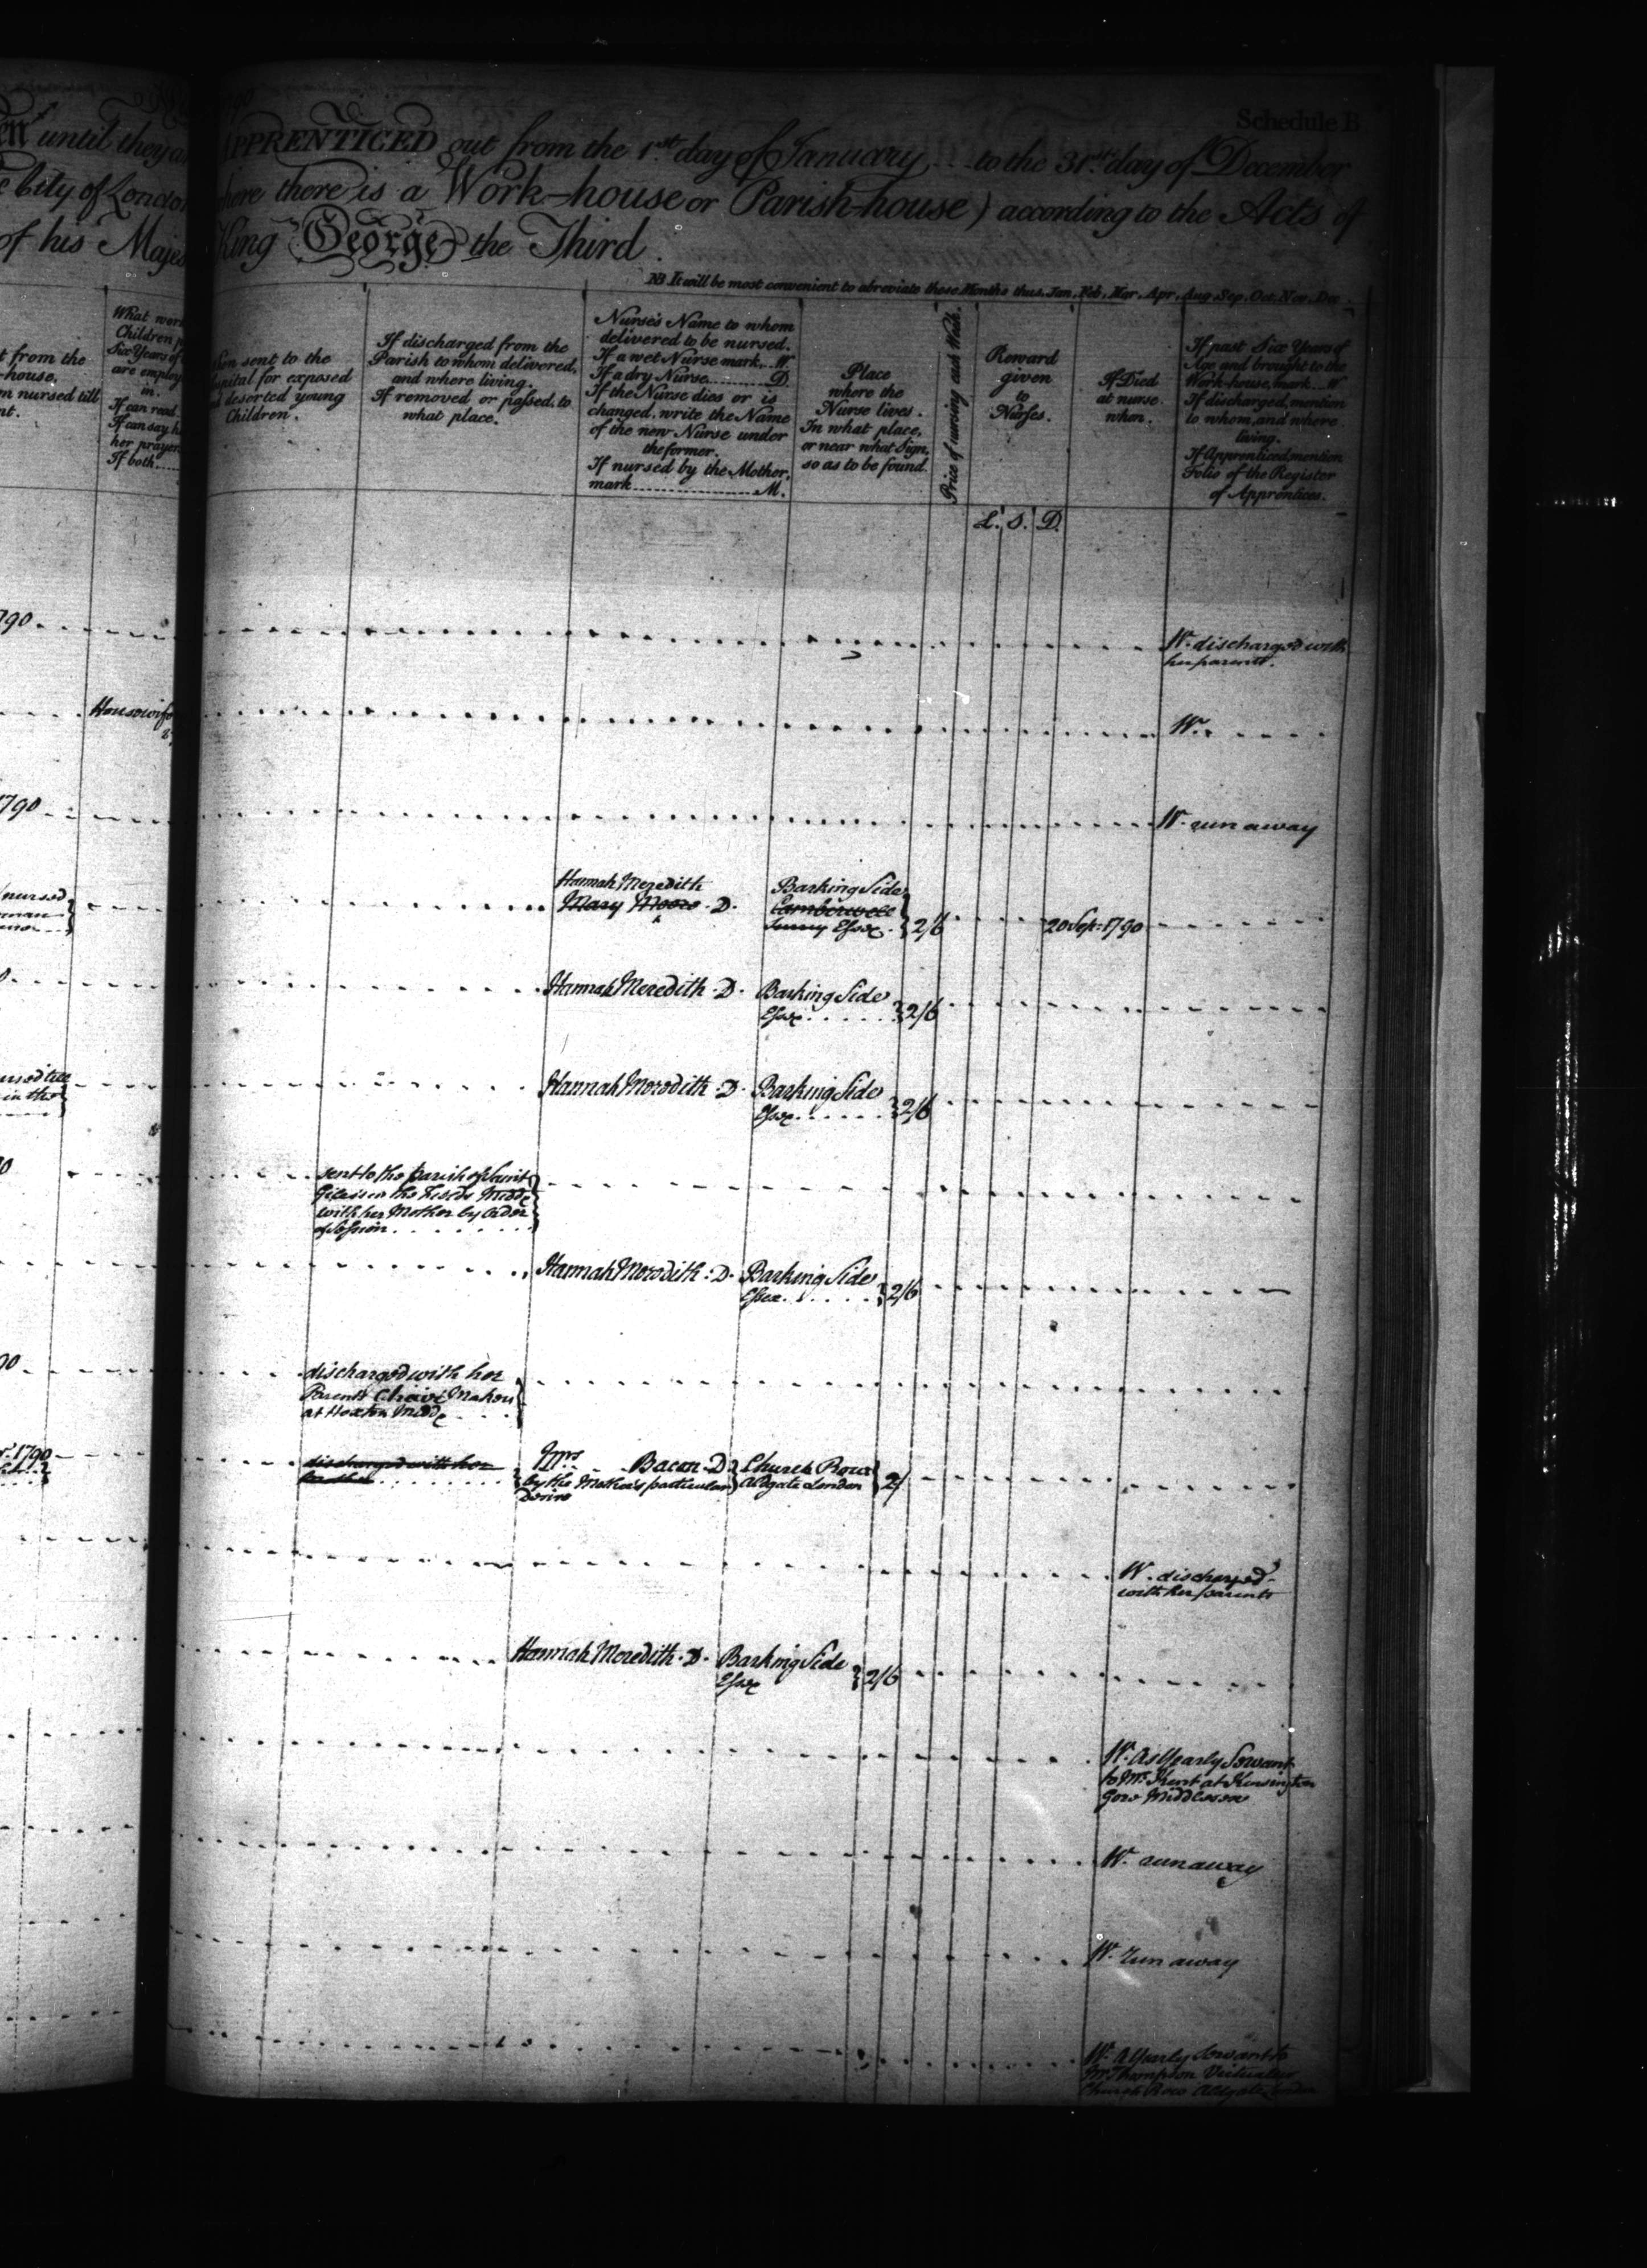 Schedule B
en until they a
APPRENTICED out from the 1st day of January, to the 31st day of December
e City of London
here there is a Work-house or Parish-house) according to the Acts of
of his Majes
King George the Third.
NB It will be most convenient to abreviate these Months thus, Jan, Feb, Mar, Apr, Aug, Sep, Oct, Nov, Dec.
t from the
-house,
n nursed till
nt.
What wor
Children
Six Years of
are employ
in.
If can read
If can say h
her prayer
If both
hen sent to the
ospital for exposed
d deserted young
Children.
If discharged from the
Parish to whom delivered,
and where living.
If removed or passed, to
what place.
Nurse's Name to whom
delivered to be nursed.
If a wet Nurse mark W.
If a dry Nurse D.
If the Nurse dies or is
changed, write the Name
of the new Nurse under
the former.
If nursed by the Mother,
mark M.
Place
where the
Nurse lives.
In what place,
or near what Sign,
so as to be found.
Price of nursing each Week.
Reward
given
to
Nurses.
If Died
at nurse
when.
If past Six Years of
Age and brought to the
Work-house, mark W
If discharged, mention
to whom, and where
living.
If Apprenticed, mention
Folio of the Register
of Apprentices.
L. S. D.
790
W. discharged with
her parents.
Housewife
W.
1790
W. run away
nursed
Hannah Meredith
Mary Moore D.
Barking Side
Camberwell
Surry Essex
2/6
20 Sep. 1790
Hannah Meredith D. Barking Side
Essex
2/6
nursed till
in the
Hannah Meredith D. Barking Side
Essex
2/6
0
sent to the parish of Saint
Giles in the Fields Midd
with her Mother by Order
of Session
Hannah Meredith D. Barking Side
Essex
2/6
90
discharged with her
Parents Chair Makers
at Hoxton Midd
1790
discharged with her
Mrs Bacon D. Church Row
by the Mother's particular Aldgate London
Desire
2/
W. discharged
with her parents
Hannah Meredith D. Barking Side
Essex
2/6
W. As Yearly Servant
to Mrs Kent at Kensington
Gore Middlesex
W. run away
W. run away
W. A Yearly Servant to
Mr Thompson Victualer
Church Row Aldgate London